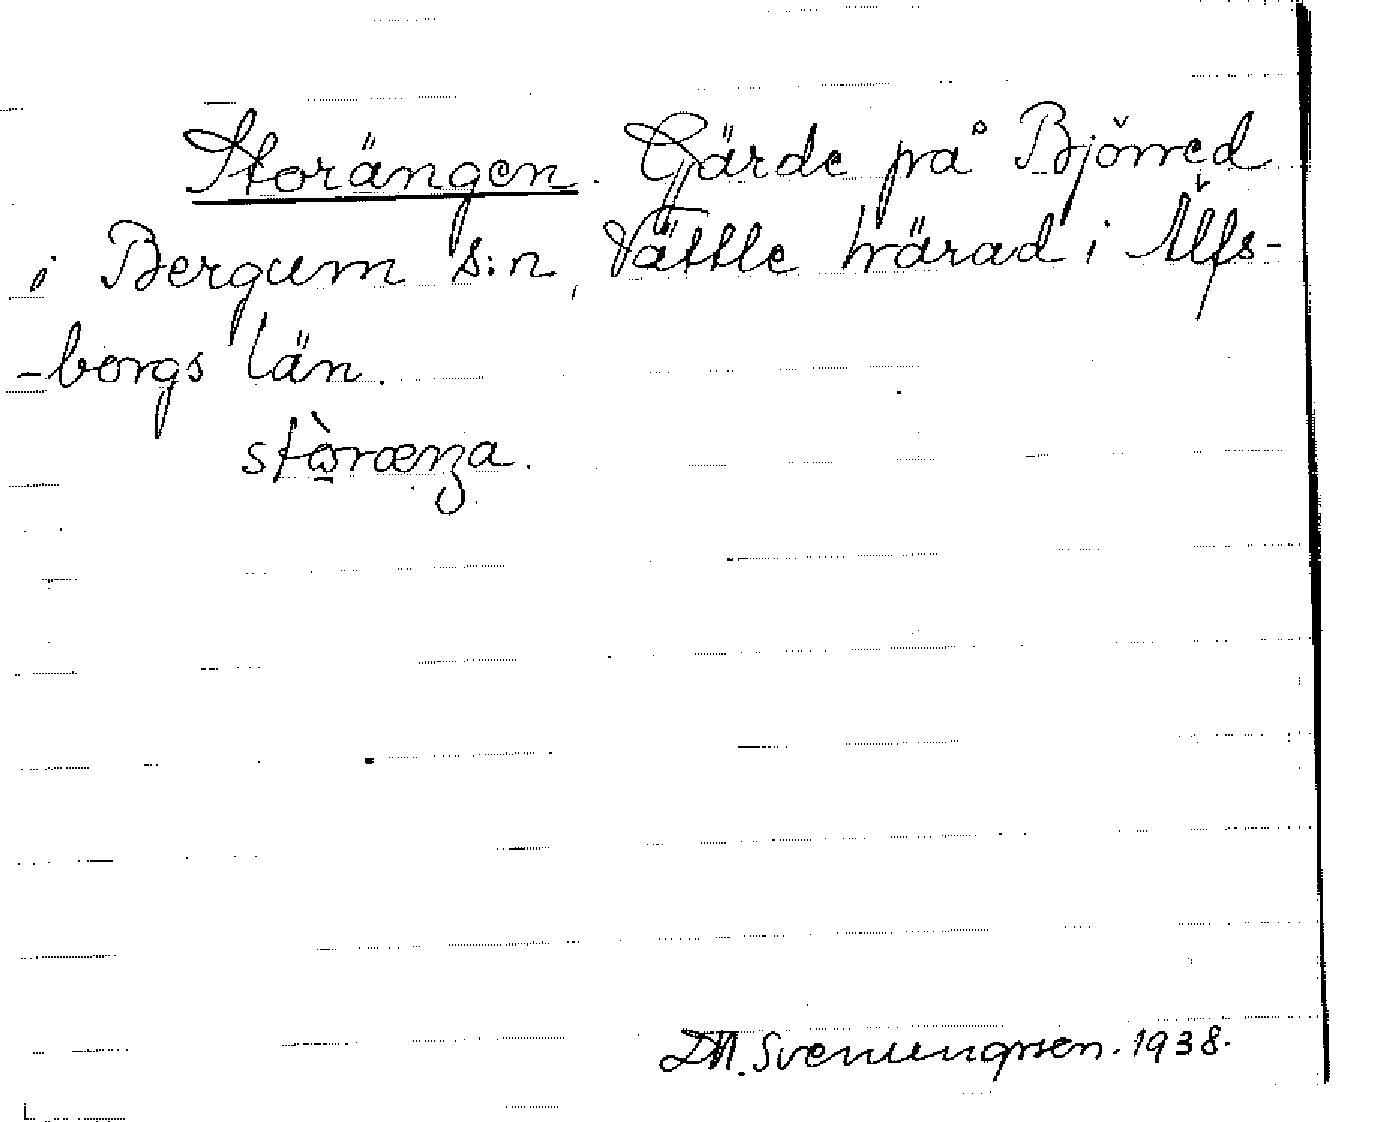 Storängen. Gärde på Björred
i Bergum s:n, Vättle härad i Älfs-
-borgs län.
stòrænga.
Svenungsson. 1938.